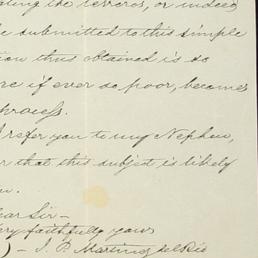 ating the terreros, or indeed
be submitted to this simple
tion thus obtained is so
ore if ever so poor, becomes
process.
I refer you to my Nephew,
or that this subject is likely
ear Sir—
ery faithfully yours
) — J. P. Martinez del Rio